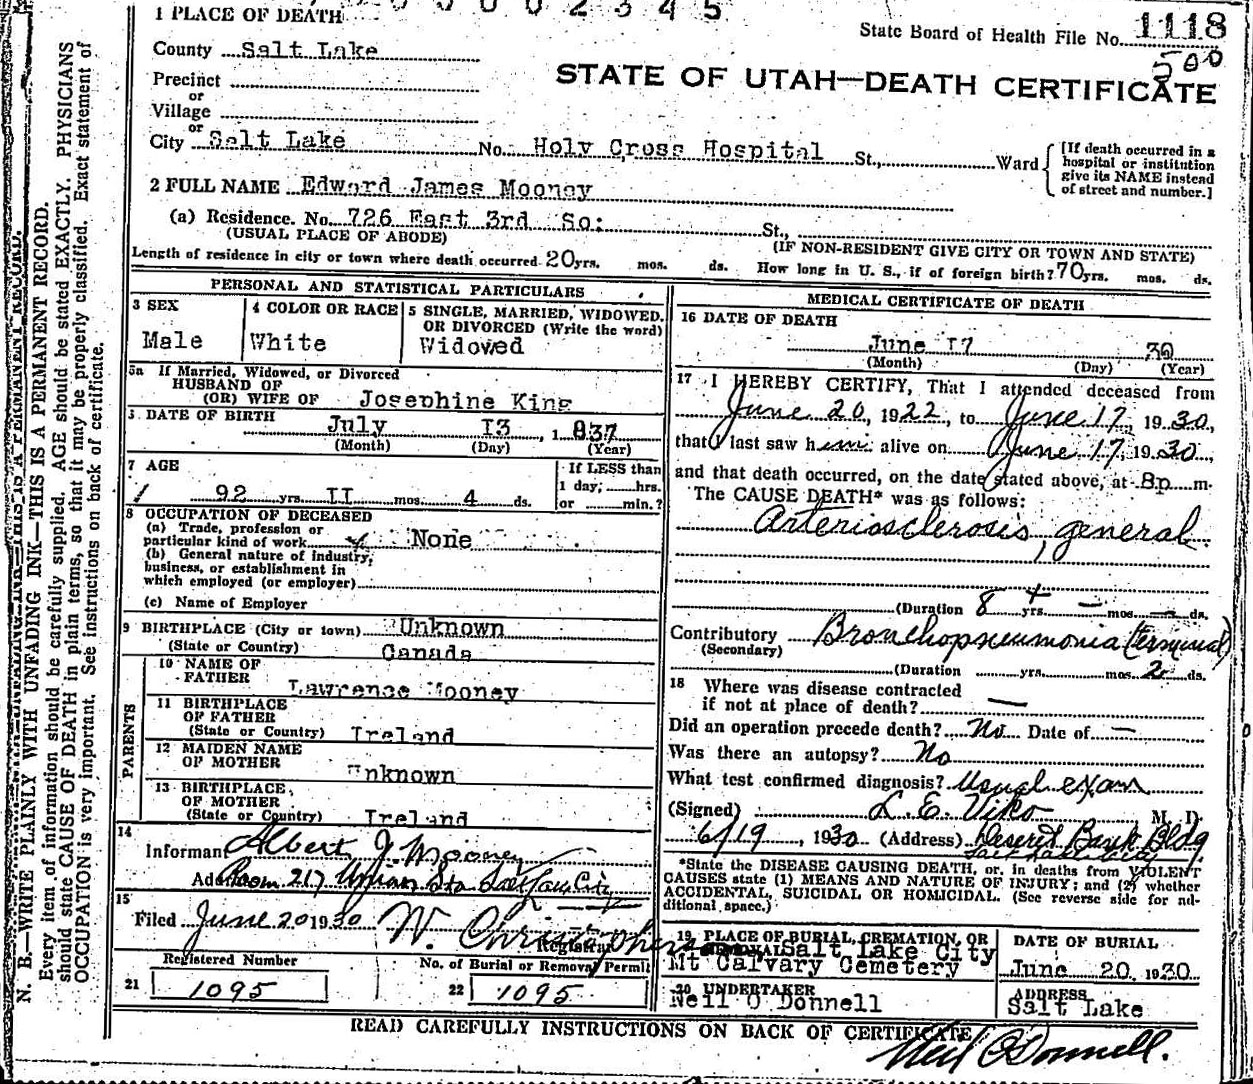 0 0 0 2 3 4 5
1 PLACE OF DEATH
State Board of Health File No. 1118
500
County Salt Lake
STATE OF UTAH—DEATH CERTIFICATE
Precinct
or
Village
or
City Salt Lake No. Holy Cross Hospital St., Ward
[If death occurred in a
hospital or institution
give its NAME instead
of street and number.]
2 FULL NAME Edward James Mooney
(a) Residence. No. 726 East 3rd So: St.,
(USUAL PLACE OF ABODE) (IF NON-RESIDENT GIVE CITY OR TOWN AND STATE)
Length of residence in city or town where death occurred 20 yrs. mos. ds. How long in U. S., if of foreign birth? 70 yrs. mos. ds.
PERSONAL AND STATISTICAL PARTICULARS
3 SEX
Male
4 COLOR OR RACE
White
5 SINGLE, MARRIED, WIDOWED,
OR DIVORCED (Write the word)
Widowed
5a If Married, Widowed, or Divorced
HUSBAND OF
(OR) WIFE OF Josephine King
DATE OF BIRTH
July 13, 1837
(Month) (Day) (Year)
7 AGE
92 yrs. II mos. 4 ds.
If LESS than
1 day, hrs.
or min.?
8 OCCUPATION OF DECEASED
(a) Trade, profession or
particular kind of work None
(b) General nature of industry,
business, or establishment in
which employed (or employer)
(c) Name of Employer
9 BIRTHPLACE (City or town) Unknown
(State or Country) Canada
PARENTS
10 NAME OF
FATHER
Lawrence Mooney
11 BIRTHPLACE
OF FATHER
(State or Country) Ireland
12 MAIDEN NAME
OF MOTHER
Unknown
13 BIRTHPLACE,
OF MOTHER
(State or Country) Ireland
14
Informant Albert J. Mooney
Address Room 217 Union Sta Salt Lake City
15
Filed June 20 1930 W. Christopherson
Registrar
Registered Number
21 1095
No. of Burial or Removal Permit
22 1095
MEDICAL CERTIFICATE OF DEATH
16 DATE OF DEATH
June 17 30
(Month) (Day) (Year)
17 I HEREBY CERTIFY, That I attended deceased from
June 20, 1922, to June 17, 1930,
that I last saw him alive on June 17, 1930,
and that death occurred, on the date stated above, at 8p m.
The CAUSE DEATH* was as follows:
Arteriosclerosis, general.
(Duration 8 + yrs. — mos. — ds.
Contributory Bronchopneumonia (terminal)
(Secondary)
(Duration yrs. mos. 2 ds.
18 Where was disease contracted
if not at place of death? —
Did an operation precede death? No Date of —
Was there an autopsy? No
What test confirmed diagnosis? Usual exam
(Signed) L. E. Viko M. D.
6/19, 1930 (Address) Deseret Bank Bldg
Salt Lake City
*State the DISEASE CAUSING DEATH, or, in deaths from VIOLENT
CAUSES state (1) MEANS AND NATURE OF INJURY; and (2) whether
ACCIDENTAL, SUICIDAL OR HOMICIDAL. (See reverse side for ad-
ditional space.)
19 PLACE OF BURIAL, CREMATION, OR
REMOVAL Salt Lake City
Mt Calvary Cemetery
DATE OF BURIAL
June 20, 1930
20 UNDERTAKER
Neil O Donnell
ADDRESS
Salt Lake
READ CAREFULLY INSTRUCTIONS ON BACK OF CERTIFICATE
Neil O'Donnell.
N. B.—WRITE PLAINLY WITH UNFADING INK—THIS IS A PERMANENT RECORD.
Every item of information should be carefully supplied. AGE should be stated EXACTLY. PHYSICIANS
should state CAUSE OF DEATH in plain terms, so that it may be properly classified. Exact statement of
OCCUPATION is very important. See instructions on back of certificate.